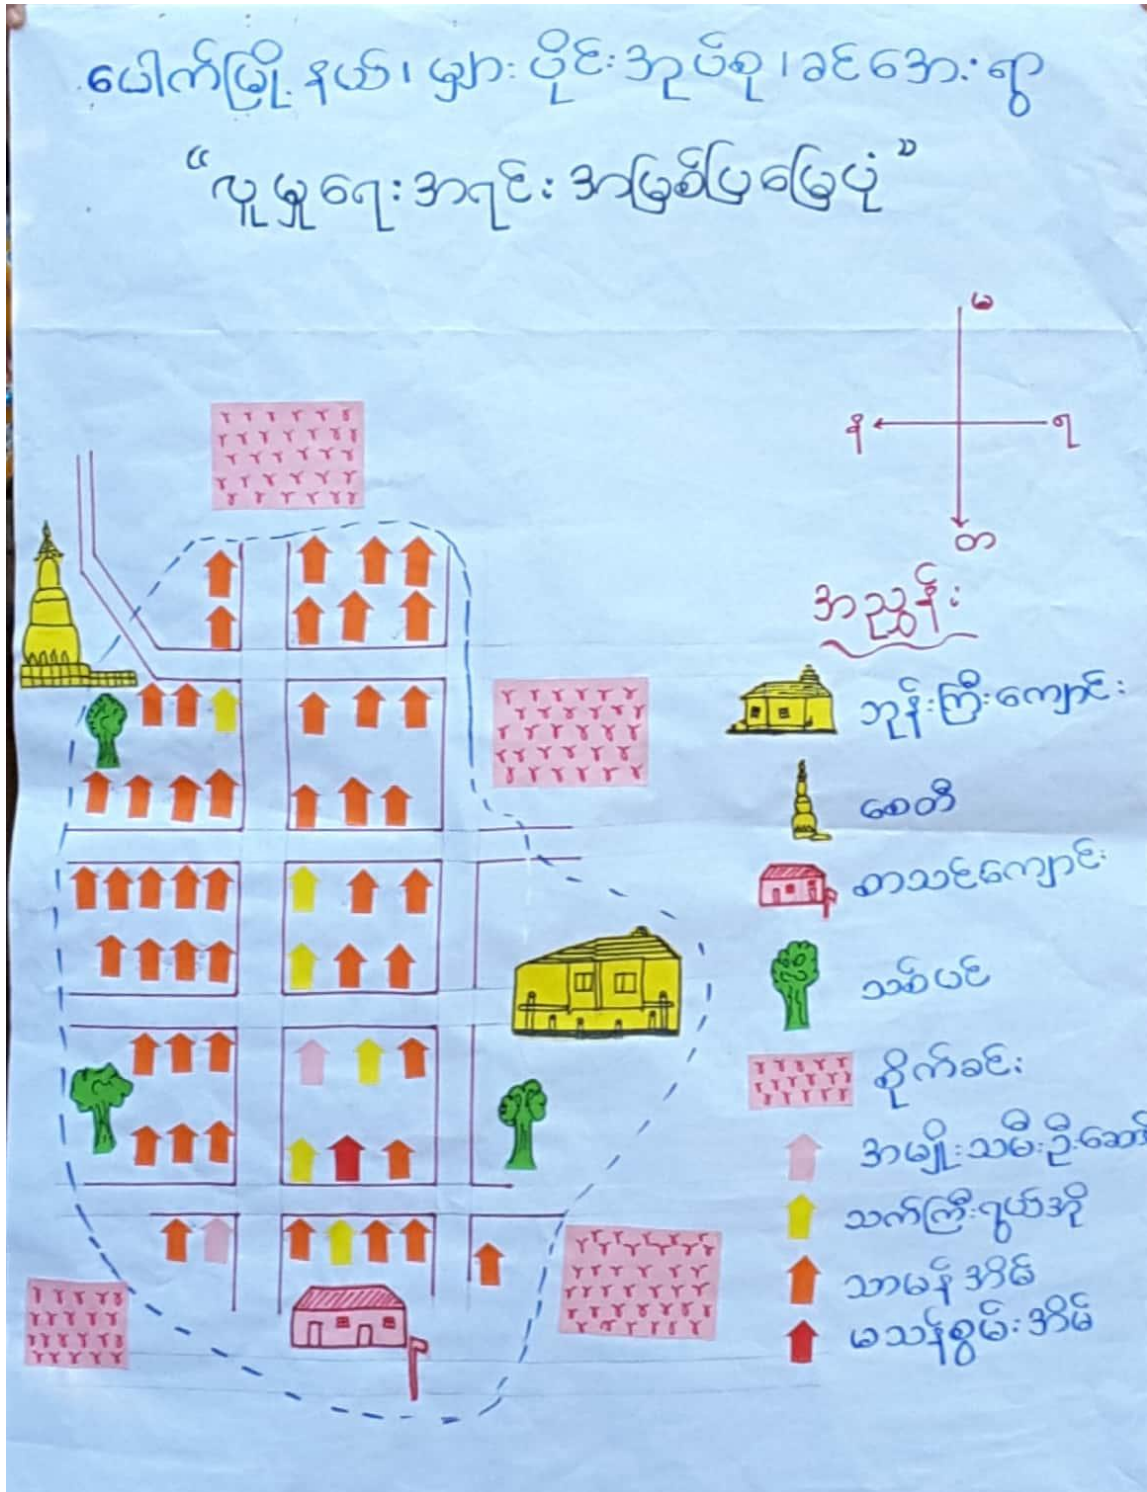 ပေါက်မြို့နယ်၊ မျှားပိုင်းအုပ်စု၊ခင်အေးရွာ
“လူမှုရေးအရင်းအမြစ်ပြမြေပုံ”
မ
န ရ
တ
အညွှန်း
ဘုန်းကြီးကျောင်း
စေတီ
စာသင်ကျောင်း
သစ်ပင်
စိုက်ခင်း
အမျိုးသမီးဦးဆောင်
သက်ကြီးရွယ်အို
သာမန်အိမ်
မသန်စွမ်းအိမ်